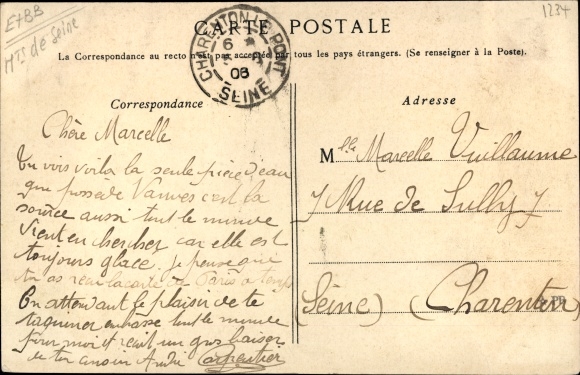 E+BB
Hts de Seine
1234
CARTE POSTALE
La Correspondance au recto n'est pas acceptée par tous les pays étrangers. (Se renseigner à la Poste).
CHARENTON-LE-PONT
6
06
SEINE
Correspondance
Chère Marcelle
tu vois voila la seule pièce d'eau
que possede Vanves c'est la
source aussi tout le monde
vient en chercher car elle est
toujours glacé, je pense que
tu as reçu la carte de Paris a temps
En attendant le plaisir de te
taquiner embrasse tout le monde
pour moi et recoit un gros baiser
de ton cousin André Carpentier
Adresse
Mlle Marcelle Vuillaume
7 Rue de Sully 7
(Seine) (Charenton)